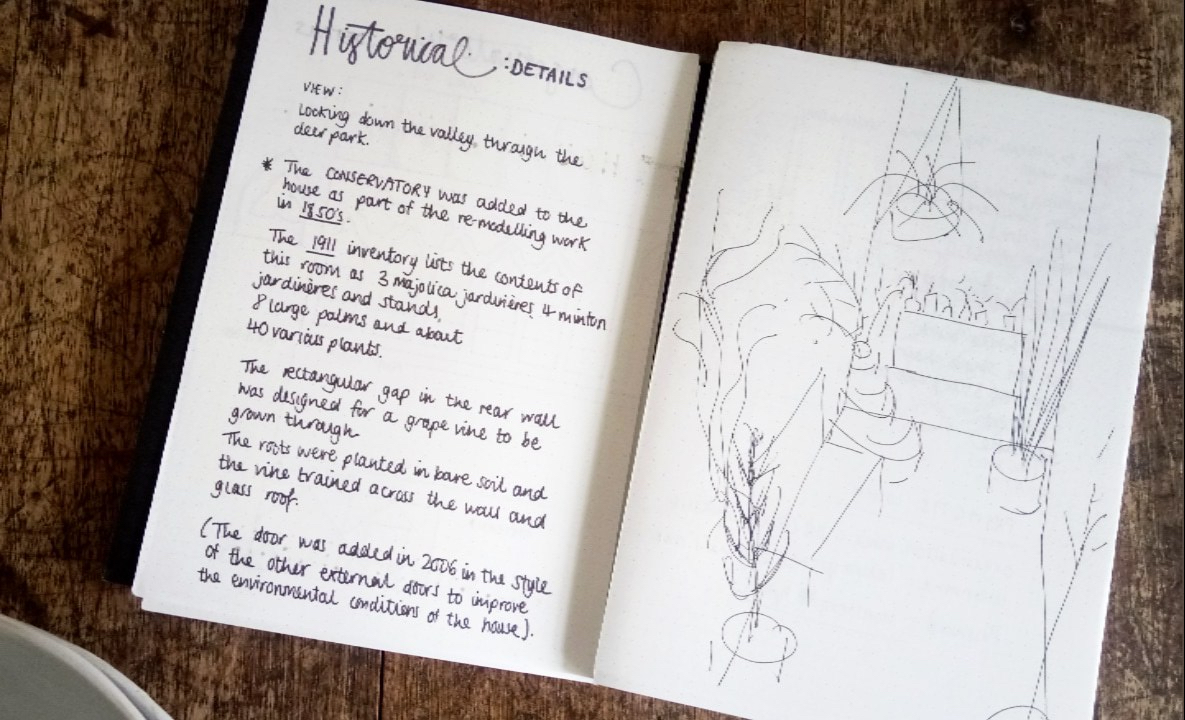 Historical : DETAILS
VIEW:
Looking down the valley, through the
deer park.
* The CONSERVATORY was added to the
house as part of the re-modelling work
in 1850's.
The 1911 inventory lists the contents of
this room as 3 majolica jardinières 4 minton
jardinières and stands,
8 large palms and about
40 various plants.
The rectangular gap in the rear wall
was designed for a grape vine to be
grown through.
The roots were planted in bare soil and
the vine trained across the wall and
glass roof.
(The door was added in 2006 in the style
of the other external doors to improve
the environmental conditions of the house).